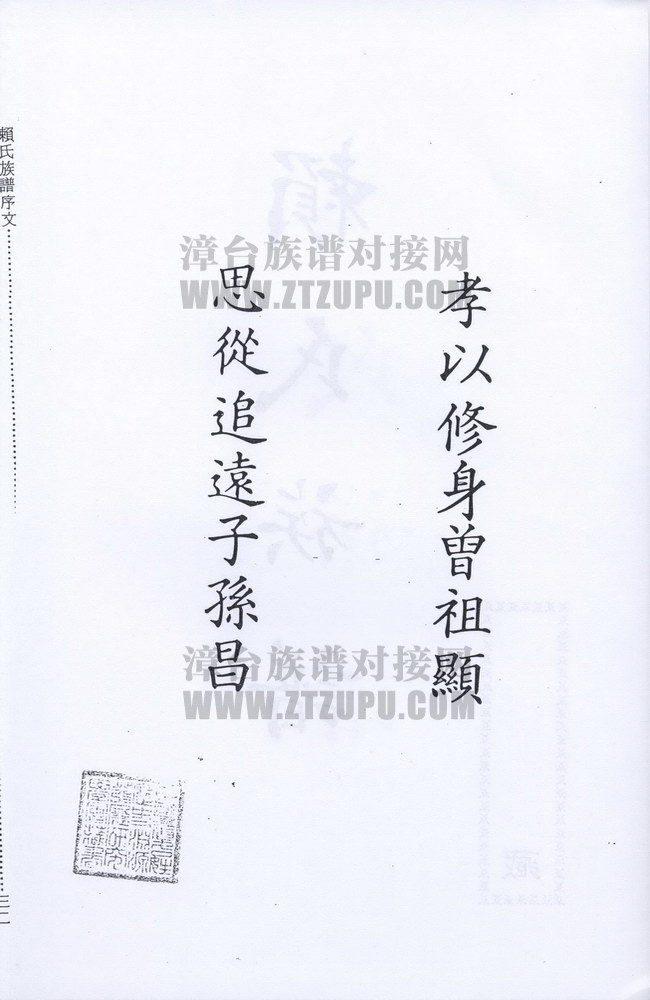 孝以修身曾祖顯
思從追遠子孫昌
賴氏族譜序文
漳台族谱对接网
WWW.ZTZUPU.COM
漳台族谱对接网
WWW.ZTZUPU.COM